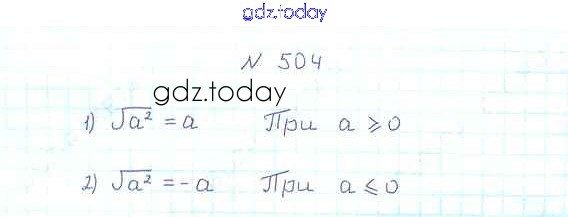 gdz.today
N 504
gdz.today
1) √a² = a При a ⩾ 0
2) √a² = - a При a ⩽ 0